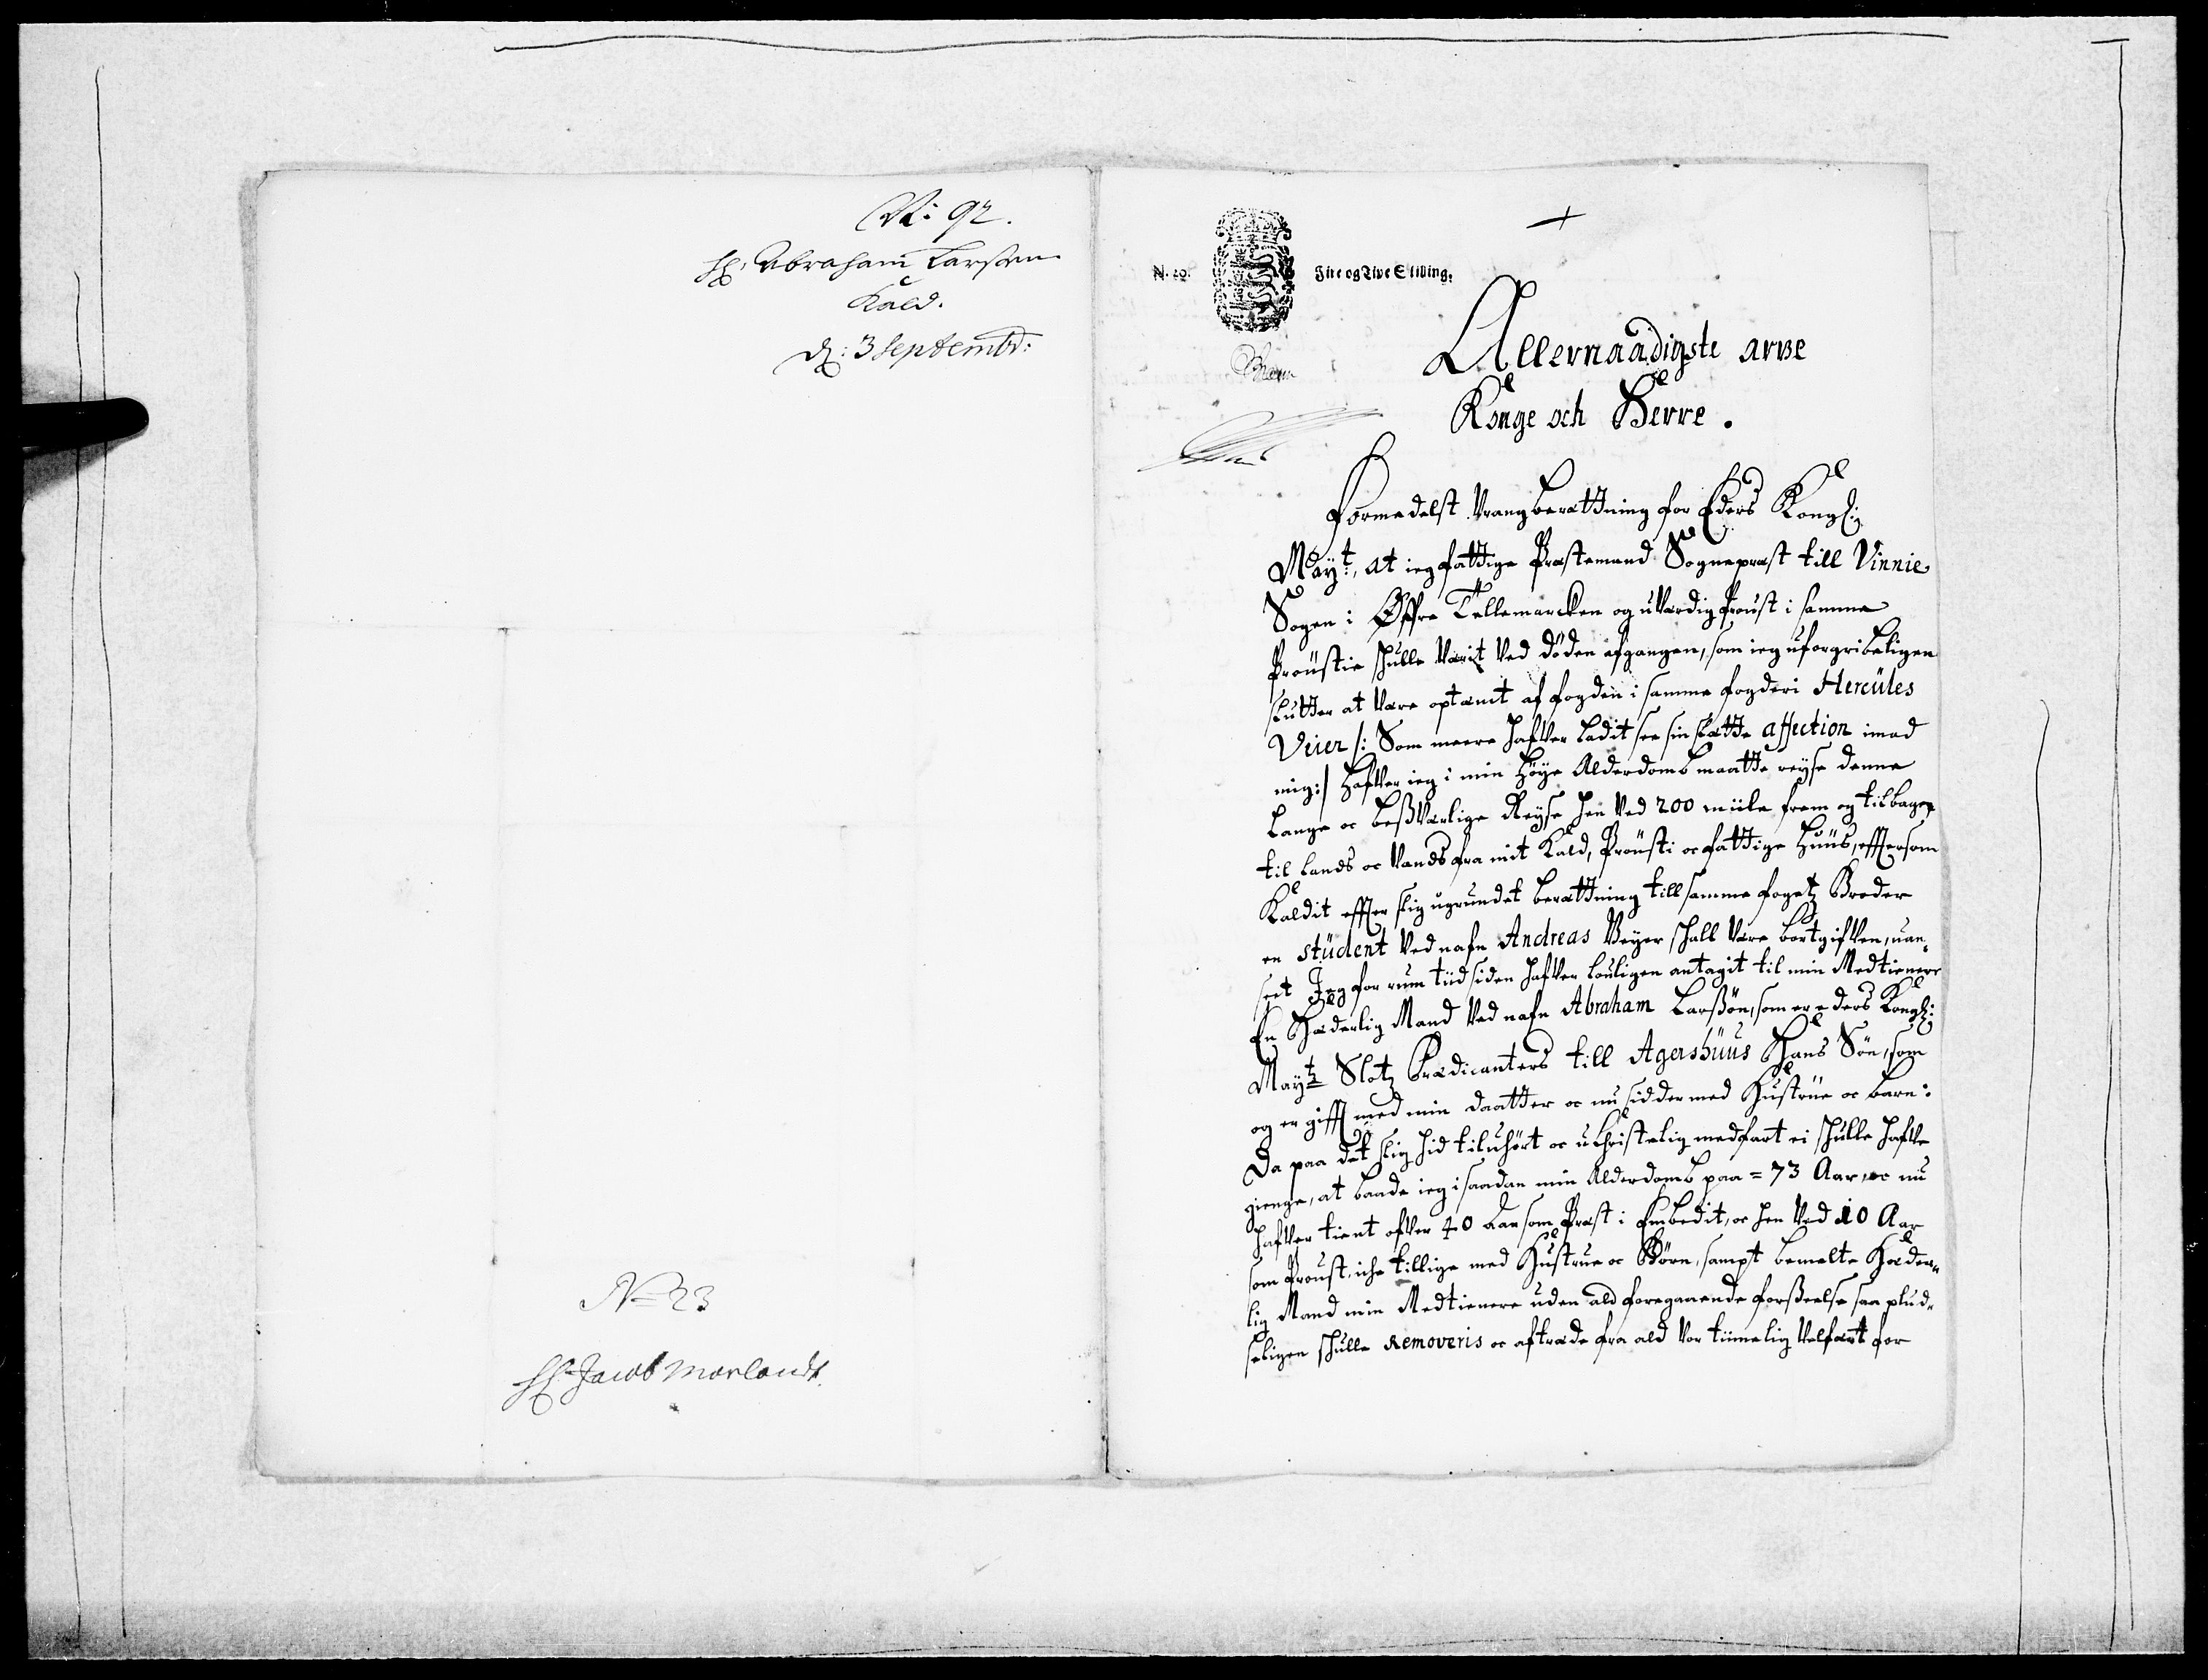 N: 92.
Hr: Abraham Larssen
Kald.
d: 3 Septembr:
No 23
Hr Jacob Morlandt
N. 20.
Fire og Tive Skilling.
Allernaadigste arve
Konge och Herre.
Formedelst Vrangberettning for Eders Kongl:
Mayt:, at ieg fattige Præstemand Sognepræst till Vinnie
Sogen i Øffre Tellemarcken og uVærdig Proust i samme
Proustie schulle Værit Ved døden afgangen, som ieg uforgribeligen
slutter at Være optænt af fogden i samme fogderi Hercules
Veier /: Som meere hafver ladit see sin slætte affection imod
mig:/ hafver ieg i min höye Alderdomb maatte reyse denne
lange oc besværlige Reyse hen Ved 200 miile frem og tilbage
til lands oc Vands fra mit Kald, Prousti oc fattige huus, effersom
Kaldit effter slig ugrundet berættning till samme fogetz Broder
en student Ved nafn Andreas Veyer schall Være bortgifven, uan-
seet Jeg for rum tiid siden hafver louligen antagit til min Medtienere
En Hæderlig Mand Ved nafn Abraham Larssøn, som er eders Kongl:
Maytz Slotz Prædicanters till Agershuus Hans Søn, som
og er gifft med min daatter oc nu sidder med Hustrue oc barn:
Da paa det slig hid til uhørt oc uChristelig medfart ei schulle hafve
gienge, at baade ieg i saadan min Alderdomb paa = 73 Aar, oc nu
hafver tient ofver 40 Aar som Præst i Embedit, oc hen Ved 10 Aar
som Proust, iche tillige med Hustrue oc Börn, sampt bemelte Hæder-
lig Mand min Medtienere uden ald foregaaende forseelse saa plud-
seligen schulle Removeris oc aftræde fra ald Vor timelig Velfært for